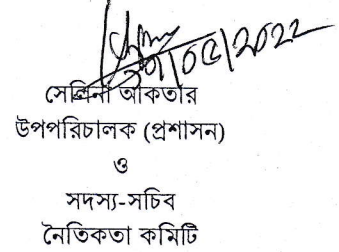 ০৫/২০২২
সেলিনা আকতার
উপপরিচালক (প্রশাসন)
ও
সদস্য-সচিব
নৈতিকতা কমিটি